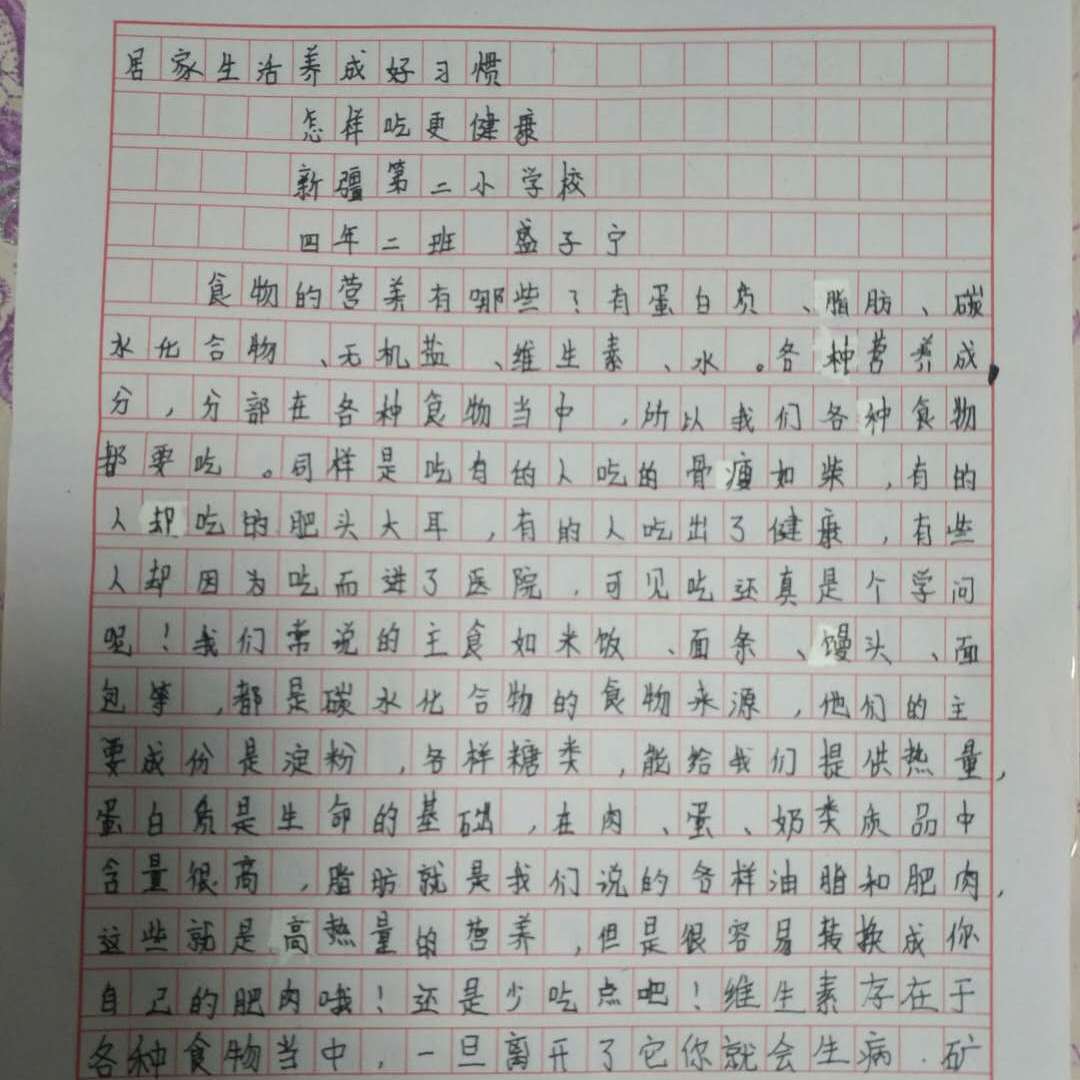 居家生活养成好习惯
怎样吃更健康
新疆第二小学校
四年二班 盛子宁
食物的营养有哪些？有蛋白质、脂肪、碳
水化合物、无机盐、维生素、水。各种营养成
分，分部在各种食物当中，所以我们各种食物
都要吃。同样是吃有的人吃的骨瘦如柴，有的
人却吃的肥头大耳，有的人吃出了健康，有些
人却因为吃而进了医院，可见吃还真是个学问
呢！我们常说的主食如米饭、面条、馒头、面
包等，都是碳水化合物的食物来源，他们的主
要成份是淀粉，各样糖类，能给我们提供热量，
蛋白质是生命的基础，在肉、蛋、奶类质品中
含量很高，脂肪就是我们说的各样油脂和肥肉，
这些就是高热量的营养，但是很容易转换成你
自己的肥肉哦！还是少吃点吧！维生素存在于
各种食物当中，一旦离开了它你就会生病．矿